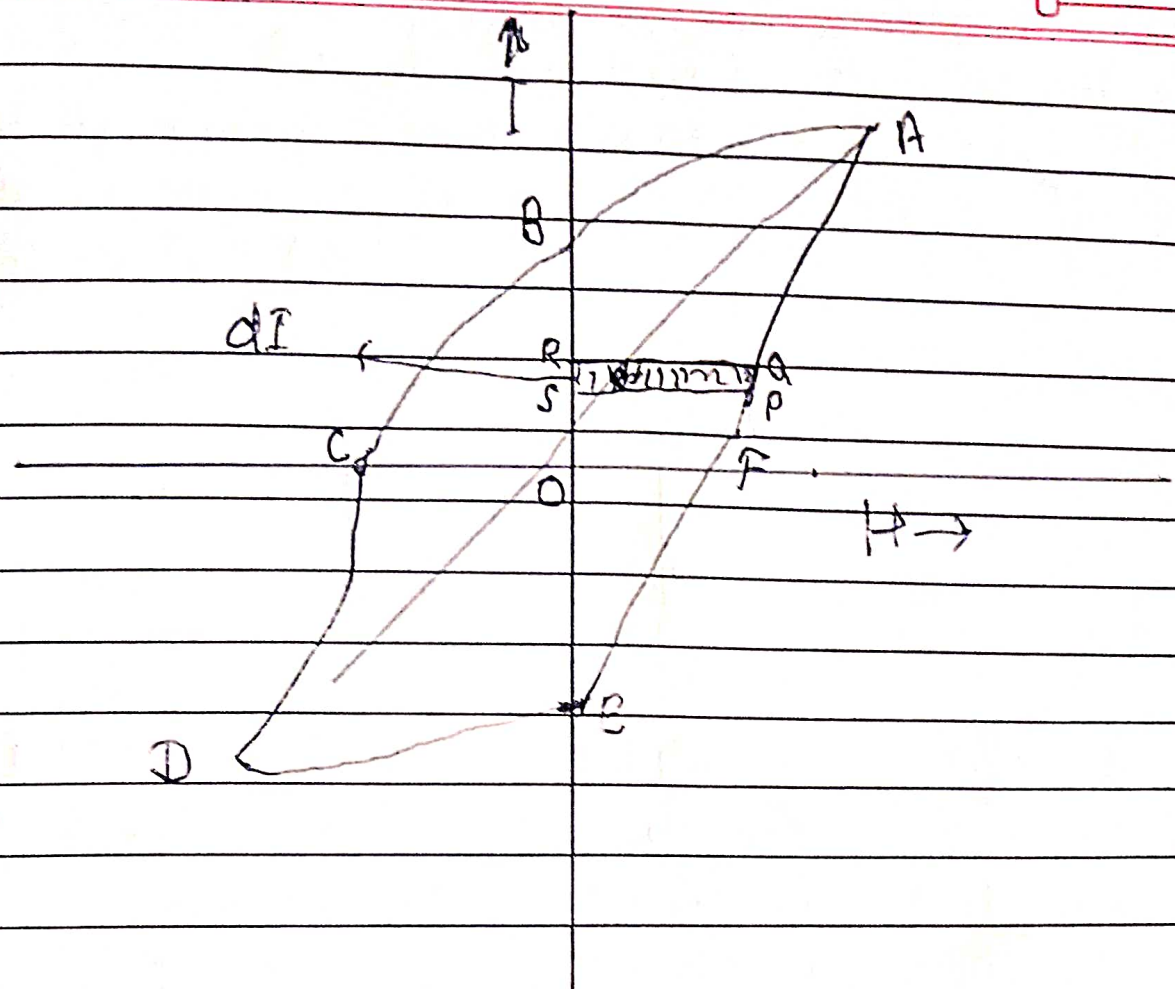 I
A
B
dI
R
Q
S
P
C
F
O
H →
E
D